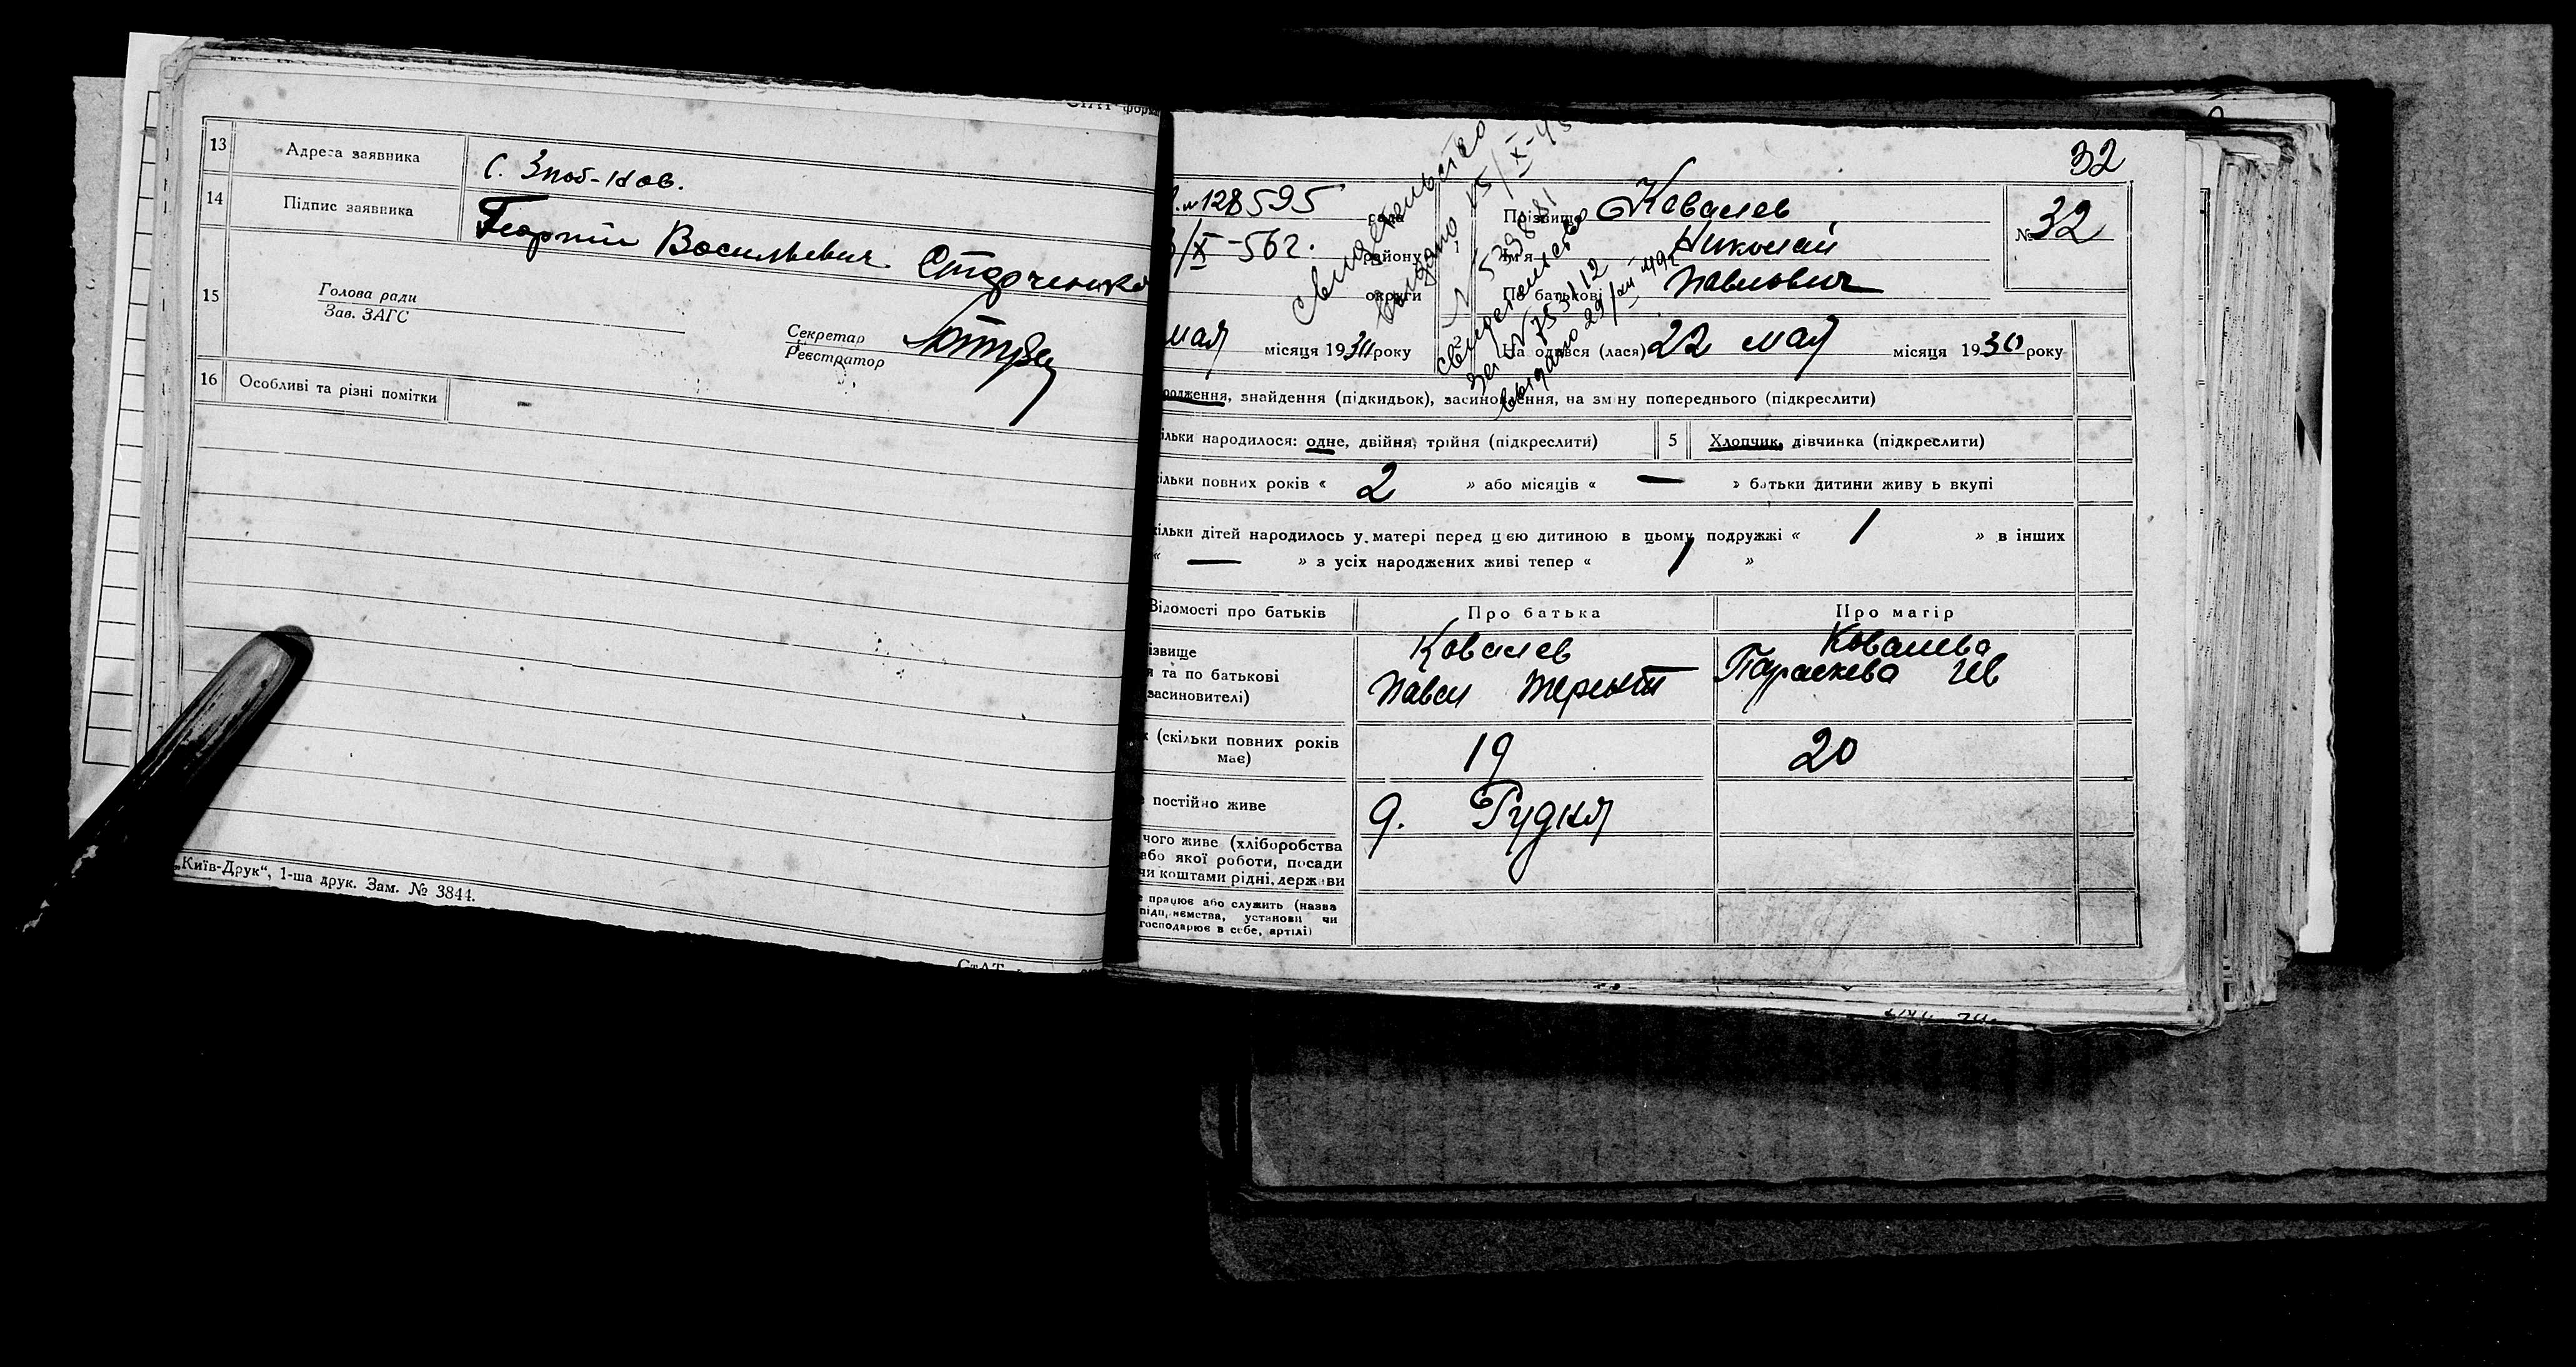 13 Адреса заявника С. Зноб-Нов.
14 Підпис заявника Георгий Васильевич Старченко
15 Голова ради
Зав. ЗАГС
Секретар
Реєстратор
16 Особливі та різні помітки -
„Київ-Друк“, 1-ша друк. Зам. № 3844.
32
№ 128595
села
/X-56 г.
району
округи
свидетельство
выдано 15/X-45
свидетельство
№ 753112
выдано 29/
Прізвище Ковалев
Ім'я Николай
По батькові Павлович
№ 32
мая місяця 1930 року
На одився (лася) 22 мая місяця 1930 року
родження, знайдення (підкидьок), засиновлення, на зміну попереднього (підкреслити)
ільки народилося: одне, двійня, трійня (підкреслити) 5 Хлопчик, дівчинка (підкреслити)
ільки повних років « 2 » або місяців « — » батьки дитини живу ь вкупі
ільки дітей народилось у матері перед цією дитиною в цьому подружжі « 1 » в інших
« — » з усіх народжених живі тепер « 1 »
Відомості про батьків Про батька Про матір
ізвище Ковалев Ковалева
я та по батькові Павел Терент Параскева
засиновителі)
(скільки повних років має) 19 20
постійно живе д. Рудня
чого живе (хліборобства
або якої роботи, посади
чи коштами рідні, держави
працює або служить (назва
підприємства, установи чи
господарює в себе, артілі)